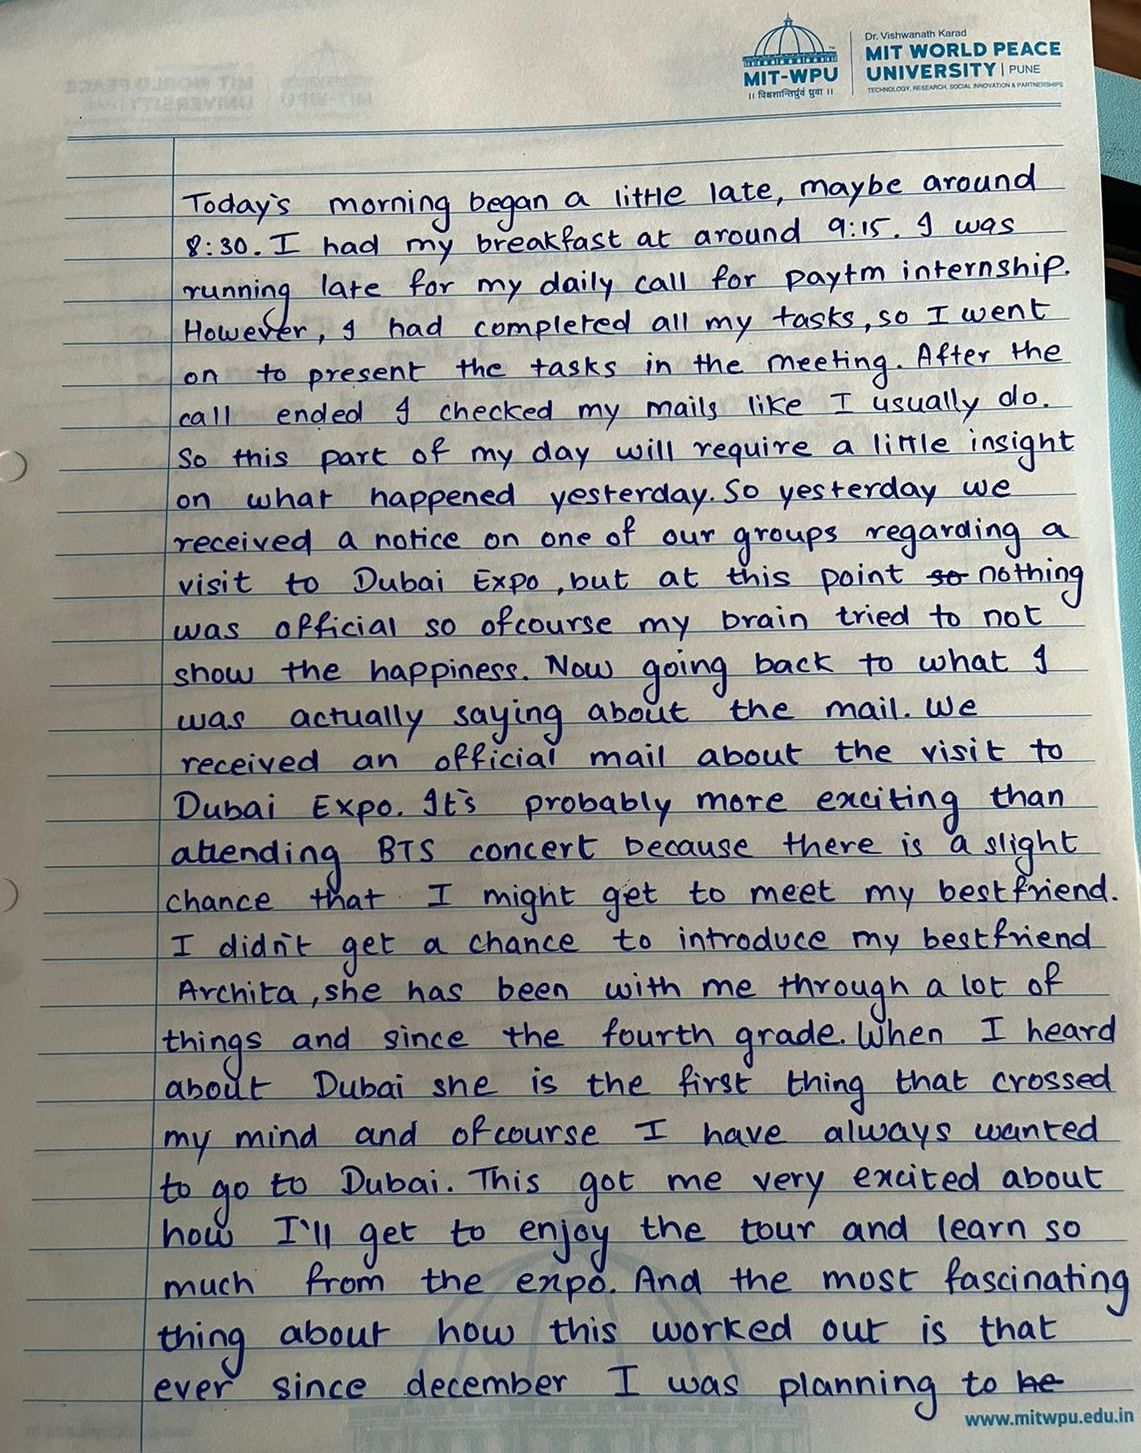 Dr. Vishwanath Karad
MIT WORLD PEACE
UNIVERSITY | PUNE
TECHNOLOGY, RESEARCH, SOCIAL INNOVATION & PARTNERSHIPS
MIT-WPU
|| विश्वशान्तिर्ध्रुवं ध्रुवा ||
Today's morning began a little late, maybe around
8:30. I had my breakfast at around 9:15. I was
running late for my daily call for paytm internship.
However, I had completed all my tasks, so I went
on to present the tasks in the meeting. After the
call ended I checked my mails like I usually do.
So this part of my day will require a little insight
on what happened yesterday. So yesterday we
received a notice on one of our groups regarding a
visit to Dubai Expo, but at this point so nothing
was official so ofcourse my brain tried to not
show the happiness. Now going back to what I
was actually saying about the mail. We
received an official mail about the visit to
Dubai Expo. It's probably more exciting than
attending BTS concert because there is a slight
chance that I might get to meet my bestfriend.
I didn't get a chance to introduce my bestfriend
Archita, she has been with me through a lot of
things and since the fourth grade. When I heard
about Dubai she is the first thing that crossed
my mind and ofcourse I have always wanted
to go to Dubai. This got me very excited about
how I'll get to enjoy the tour and learn so
much from the expo. And the most fascinating
thing about how this worked out is that
ever since december I was planning to he
www.mitwpu.edu.in